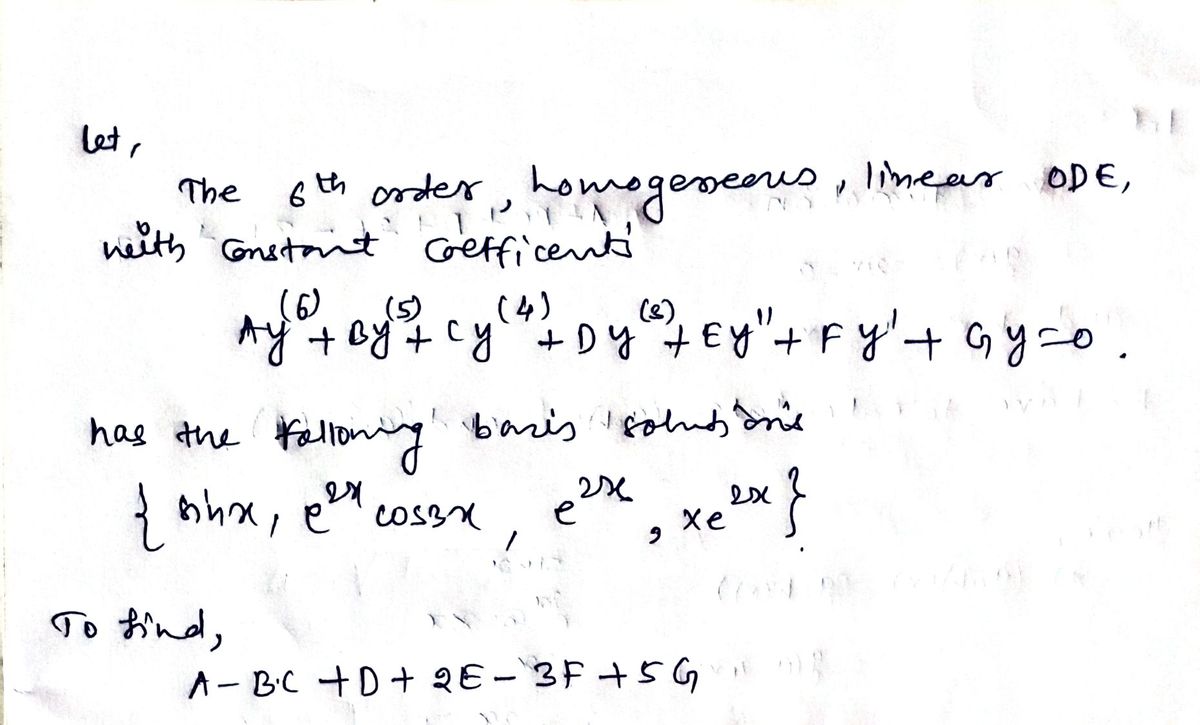 let,
The 6th order, homogeneous, linear ODE,
with constant coefficents
Ay⁽⁶⁾ + By⁽⁵⁾ + Cy⁽⁴⁾ + Dy⁽³⁾ + Ey'' + Fy' + Gy = 0.
has the following basis solutions
{ sinx, e^{2x} cos3x, e^{2x}, xe^{2x} }.
To find,
A - B·C + D + 2E - 3F + 5G